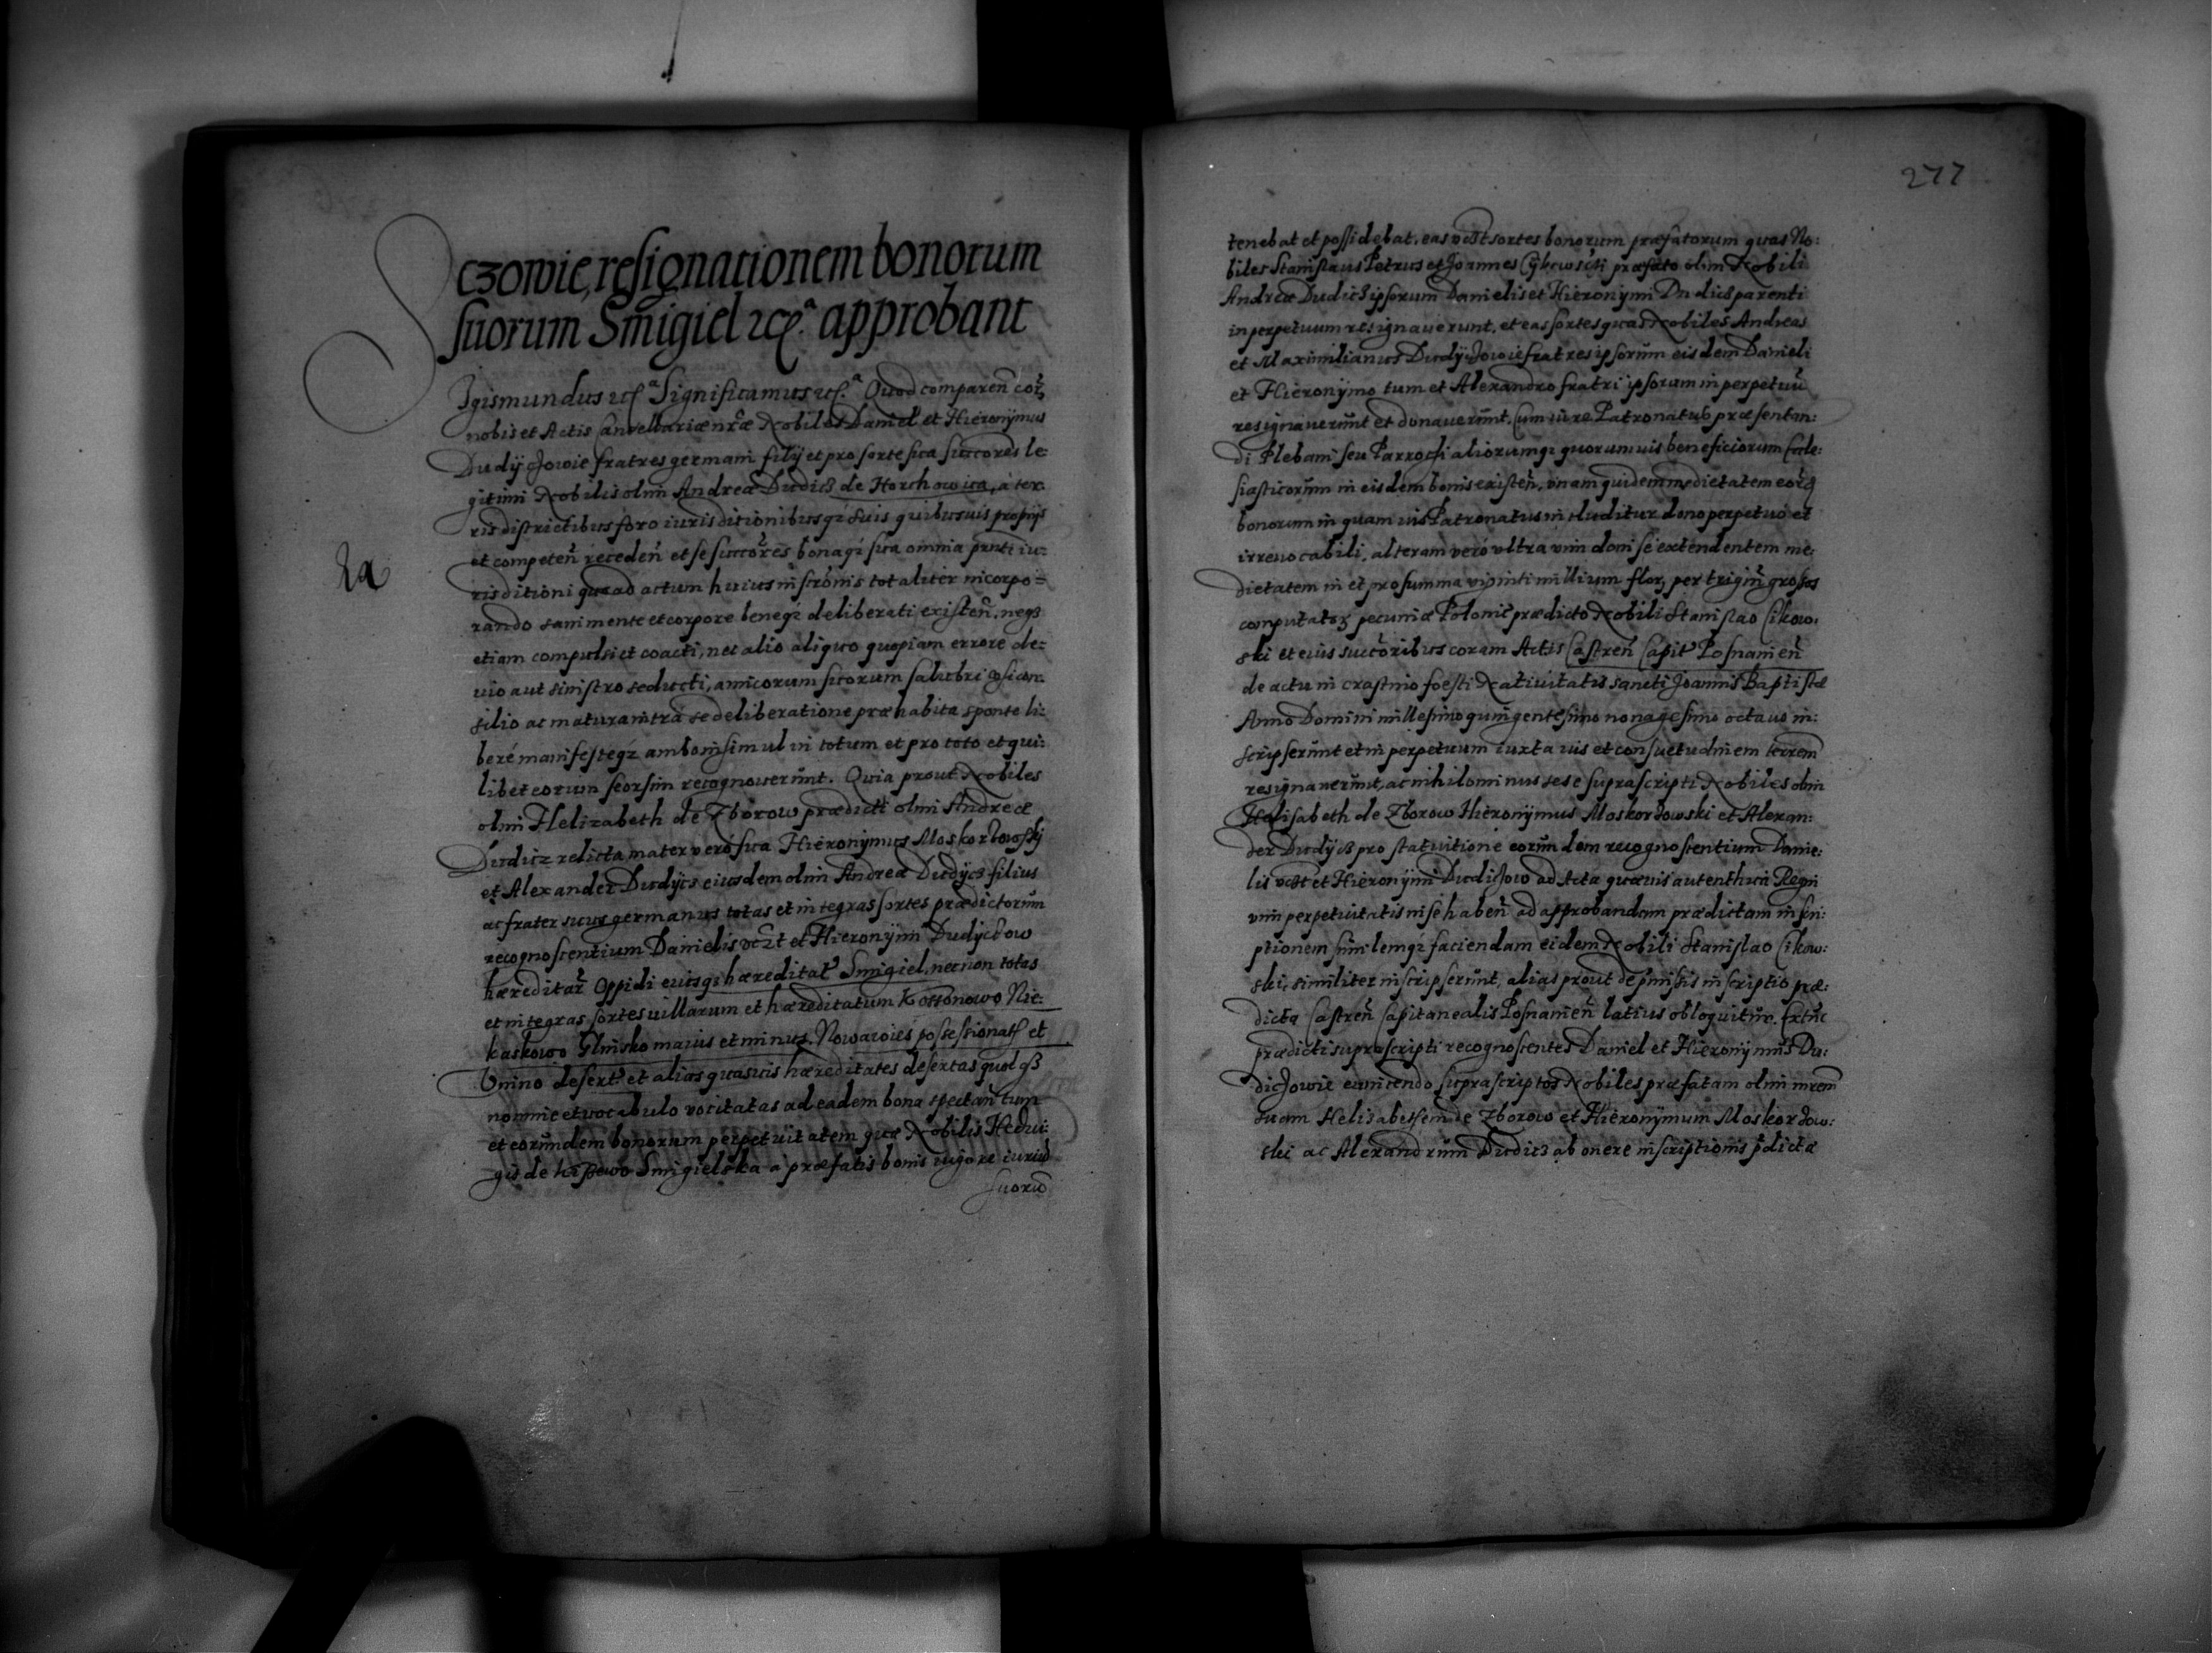 czowie, resignationem bonorum
suorum Smigiel etc.ª approbant
Sigismundus etc.ª Significamus etc.ª Quod comparen̄ cor̃
nobis et Actis Cancellariæ nr̃æ Nobiles Daniel et Hieronÿmus
Dudÿczowie fratres germani filÿ et pro sorte sua succores le:
gitimi Nobilis olim Andreæ Dudicz de Horchowica, à ter:
ris districtibus foro iurisditionibusq; suis quibusuis proprijs
et competen̄ receden̄ et se succores bonaq; sua omnia pn̄ti iu:
risditioni quoad actum huius inscrōnis totaliter incorpo=
rando sani mente et corpore beneq; deliberati existen̄, neq;
etiam compulsi et coacti, nec alio aliquo quopiam errore de:
uio aut sinistro seducti, amicorum suorum salubri con:
silio ac matura intra se deliberatione præhabita sponte li:
berè manifesteq; ambo insimul in totum et pro toto et qui:
libet eorum seorsim recognouerunt. Quia prout Nobiles
olim Helizabeth de Zborow prædicti olim Andreæ
Dudicz relicta mater verò sua Hieronÿmus Moskorzowskÿ
et Alexander Dudÿcz eiusdem olim Andreæ Dudÿcz filius
ac frater suus germanus totas et integras sortes prædictorum
recognoscentium Danielis vc̃zt et Hieronÿmi Dudÿczow
hæreditar̃ Oppidi eiusq; hæreditat̃ Smigiel, necnon totas
et integras sortes uillarum et hæreditatum Kossonowo Nie:
kaskowo Glinsko maius et minus, Nowawies possessionat̃ et
Unino desert̃ et alias quasuis hæreditates desertas quolq;
nomine et vocabulo vocitatas ad eadem bona spectan̄ tum
et eorundem bonorum perpetuitatem quæ Nobilis Hedui:
gis de Smigielska à præfatis bonis uigore iuriu
suorū
277
tenebat et possidebat, eas vc̃zt sortes bonorum præfatorum quas No:
biles Stanislaus Petrus et Joannes Cÿkowsczÿ præfato olim Nobili
Andreæ Dudicz ipsorum Danielis et Hieronymi Dudicz parenti
in perpetuum resignauerunt, et eas sortes quas Nobiles Andreas
et Maximilianus Dudÿczowie fratres ipsorum eisdem Danieli
et Hieronÿmo tum et Alexandro fratri ipsorum in perpetuū
resignauerunt et donauerunt, cum iure Patronatus præsentan:
di Plebani seu Parrochi aliorumq; quorumuis beneficiorum Eccle:
siasticorum in eisdem bonis existen̄, vnam quidem medietatem eorq;
bonorum in quam uis Patronatus includitur dono perpetuo et
irreuocabili, alteram verò vltra vim doni se extendentem me:
dietatem in et pro summa viginti millium flor, per trigin̄ grossos
computatoȝ pecuniæ Polonic̃ prædicto Nobili Stanislao Cikow:
ski et eius succoribus coram Actis Castren̄ Capit̃ Posnanien̄
de actu in crastino foesti Natiuitatis sancti Joannis Baptistæ
Anno Domini millesimo quingentesimo nonagesimo octauo in:
scripserunt et in perpetuum iuxta uis et consuetudinem terrem̄
resignauerunt, ac nihilominus sese suprascripti Nobiles olim
Helisabeth de Zborow Hieronÿmus Moskorzowski et Alexan:
der Dudÿcz pro statuitione eorundem recognoscentium Danie:
lis vc̃zt et Hieronÿmi Dudiczow ad Acta quæuis autenthica Regni
vim perpetuitatis in se haben̄ ad approbandum prædictam inscri:
ptionem similemq; faciendam eidem Nobili Stanislao Cikow:
ski, similiter inscripserunt, alias prout de pr̃missis inscriptio præ:
dicta Castren̄ Capitanealis Posnanien̄ latius obloquitur. Extūc
prædicti suprascripti recognoscentes Daniel et Hieronÿmus Du:
diczowie euincendo suprascriptos Nobiles præfatam olim mr̃em
suam Helisabethem de Zborow et Hieronÿmum Moskorzow:
ski ac Alexandrum Dudicz ab onere inscriptionis pr̃dictæ